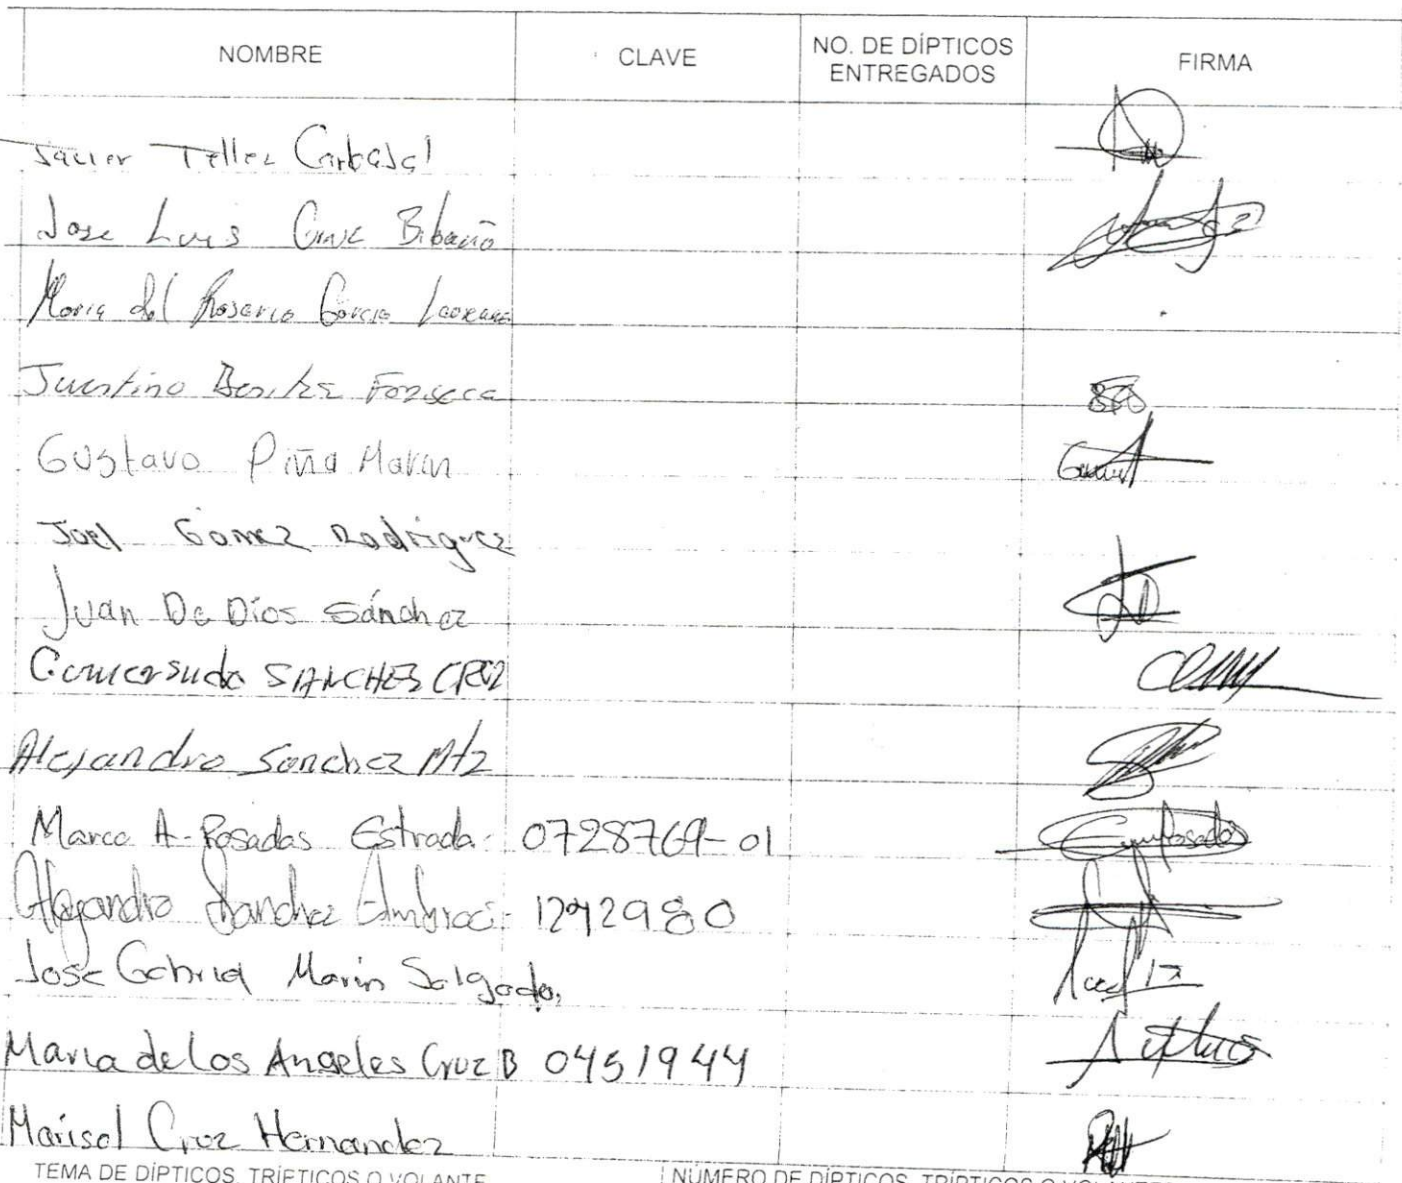 NOMBRE CLAVE NO. DE DÍPTICOS ENTREGADOS FIRMA
Javier Tellez Carbajal
Jose Luis Cruz Bibaño
Maria del Rosario Garcia
Justino Benitez Fonseca
Gustavo Piña Marin
Joel Gomez Rodriguez
Juan De Dios Sánchez
SANCHES CRUZ
Alejandro Sanchez Mtz
Marco A. Posadas Estrada. 0728769-01
Alejandro Sanchez 1292980
Jose Gabriel Marin Salgado.
Maria de Los Angeles Cruz B 0451944
Marisol Cruz Hernandez
TEMA DE DÍPTICOS, TRÍPTICOS O VOLANTE NÚMERO DE DÍPTICOS, TRÍPTICOS O